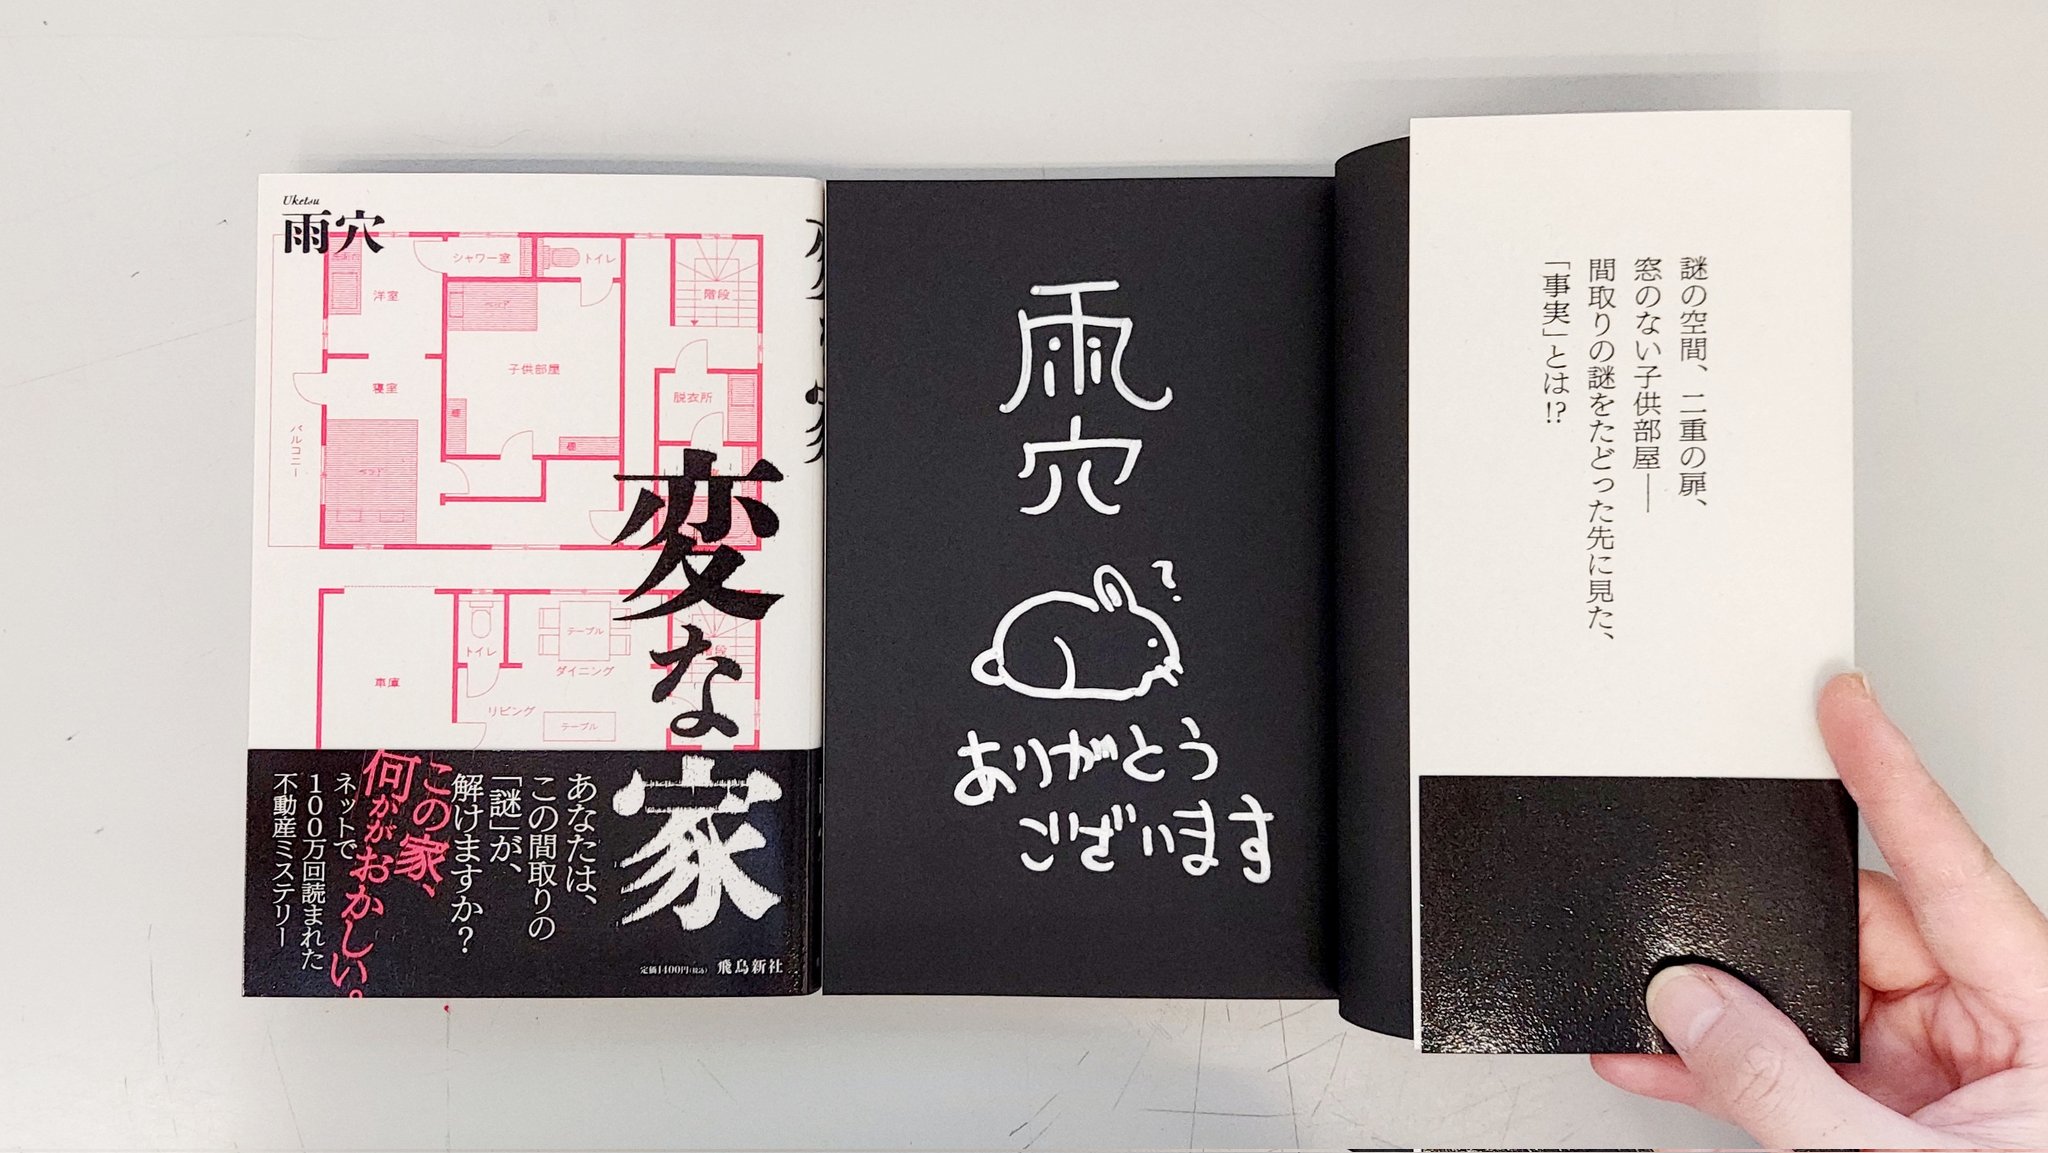 Uketsu
雨穴
シャワー室
トイレ
洋室
階段
子供部屋
寝室
脱衣所
バルコニー
ベッド
棚
棚
変な家
トイレ
テーブル
ダイニング
車庫
リビング
テーブル
あなたは、
この間取りの
「謎」が、
解けますか?
この家、
何かがおかしい。
ネットで
100万回読まれた
不動産ミステリー
定価1400円(税込)
飛鳥新社
雨穴
?
ありがとう
ございます
謎の空間、二重の扉、
窓のない子供部屋――
間取りの謎をたどった先に見た、
「事実」とは!?